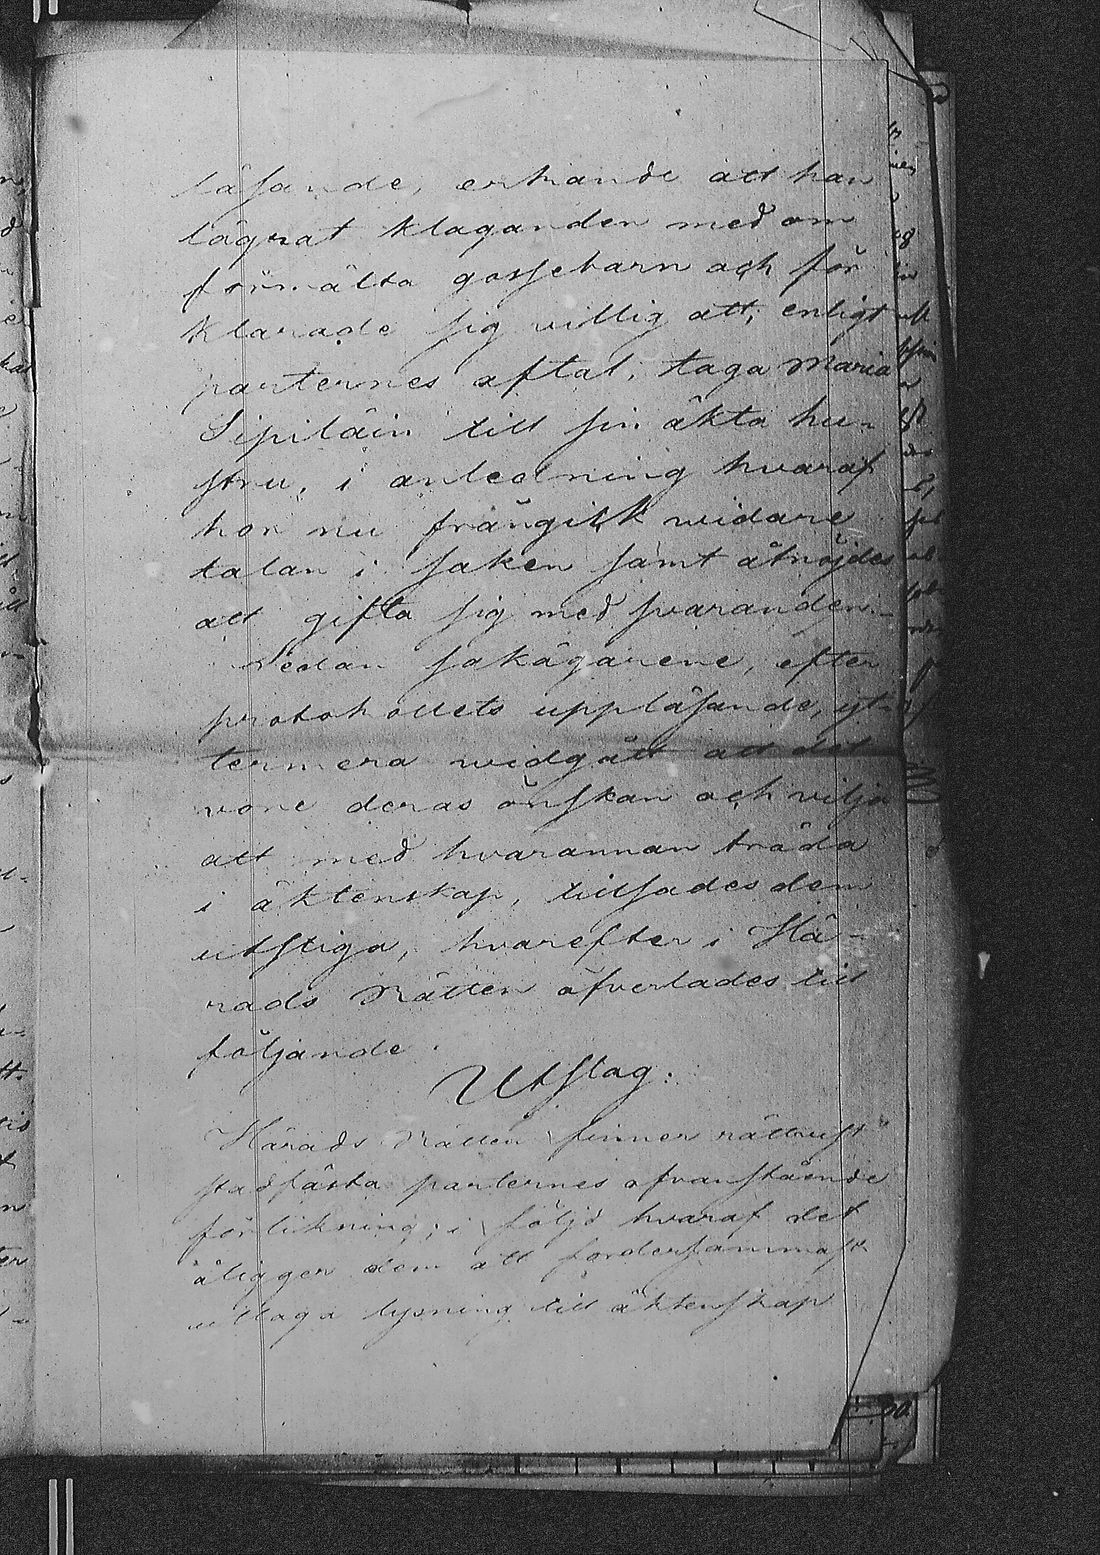 läsande, erkände att han
lägrat klaganden med om
förmälta gossebarn och för
klarade sig villig att, enligt
parternes aftal, taga Maria
Sipiläin till sin äkta hu-
stru, i anledning hvaraf
hon nu frångick widare
talan i saken samt åtnöjdes
att gifta sig med svaranden.
Sedan sakägarene, efter
protokollets uppläsande, yt-
termera widgått att det
vore deras önskan och vilja
att med hvarannan träda
i äktenskap, tillsades dem
utstiga, hvarefter i Hä-
rads Rätten öfverlades till
följande.
Utslag:
Härads Rätten finner rättvist
stadfästa parternes ofvanstående
förlikning; i följd hvaraf det
åligger dem att fordersammast
uttaga lysning till äktenskap